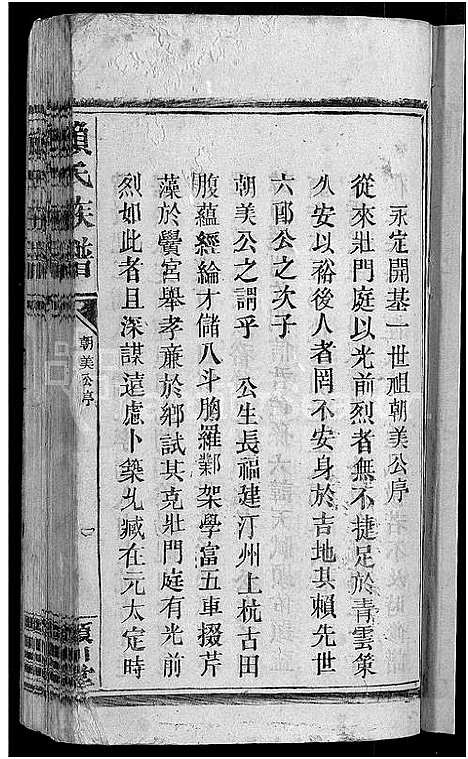 永定開基一世祖朝美公序
從來壯門庭以光前烈者無不捷足於青雲策
久安以裕後人者罔不安身於吉地其賴先世
六郎公之次子
朝美公之謂乎　公生長福建汀州上杭古田
腹蘊經綸才儲八斗胸羅鄴架學富五車掇芹
藻於黌宮舉孝亷於鄉試其克壯門庭有光前
烈如此者且深謀遠慮卜築允臧在元太定時
賴氏族譜
朝美公序
一